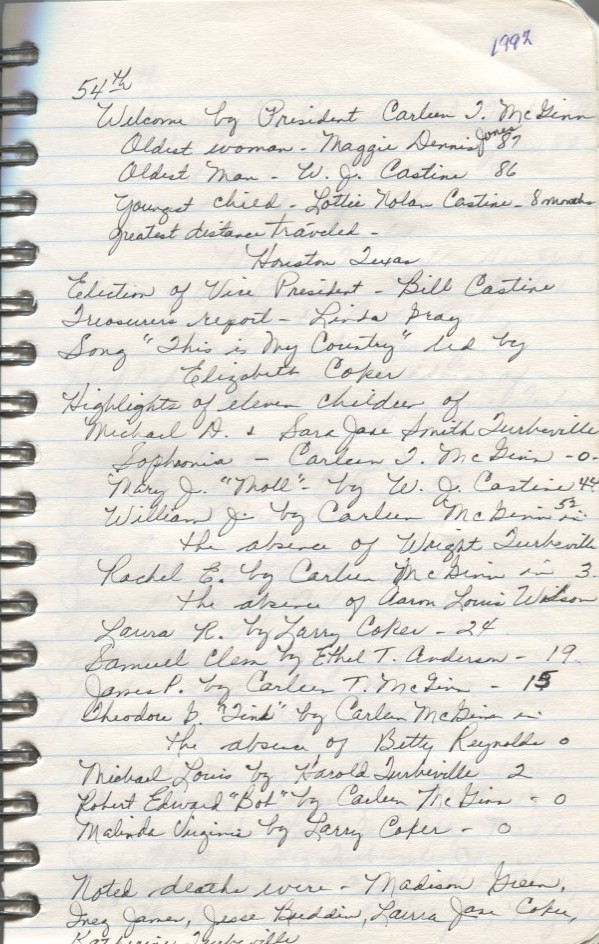 1992
54th
Welcome by President Carleen T. McGinn
Oldest woman - Maggie Dennis Jones 87
Oldest Man - W. J. Castine 86
Youngest child - Lottie Nolan Castine - 8 months
Greatest distance traveled -
Houston Texas
Election of Vice President - Bill Castine
Treasurer's report - Linda Gray
Song "This is My Country" led by
Elizabeth Coker
Highlights of eleven children of
Michael D. & Sara Jane Smith Turbeville
Sophronia - Carleen T. McGinn - 0 -
Mary J. "Moll" - by W. J. Castine 44
William J. by Carleen McGinn 52 in
the absence of Wright Turbeville
Rachel E. by Carleen McGinn in 3.
the absence of Aaron Louis Wilson
Laura R. by Larry Coker - 24
Samuel Clem by Ethel T. Anderson - 19
James P. by Carleen T. McGinn - 15
Theodore B. "Tink" by Carleen McGinn in
the absence of Betty Reynolds 0
Michael Louis by Harold Turbeville 2
Robert Edward "Bob" by Carleen McGinn - 0
Malinda Virginia by Larry Coker - 0
Noted deaths were - Madison Green,
Inez James, Jesse Buddin, Laura Jane Coker,
Katherine Turbeville